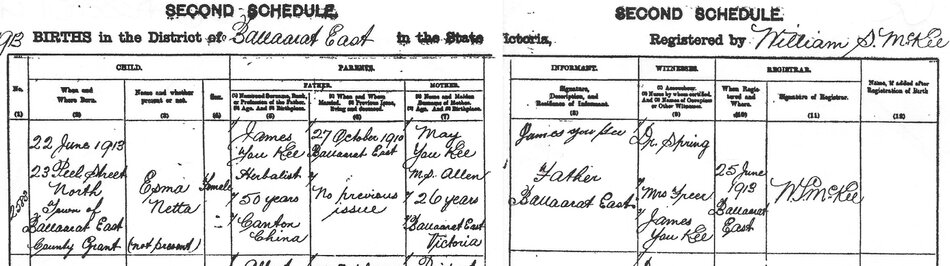 SECOND SCHEDULE.
SECOND SCHEDULE.
1913 BIRTHS in the District of Ballaarat East in the State
Victoria, Registered by William S. McKee
CHILD.
PARENTS.
INFORMANT.
WITNESSES.
REGISTRAR.
FATHER.
MOTHER.
No.
When and
Where Born.
Name and whether
present or not.
Sex.
(1) Name and Surname, Rank,
or Profession of the Father.
(2) Age. And (3) Birthplace.
(1) When and Where
Married. (2) Previous Issue,
living and deceased.
(1) Name and Maiden
Surname of Mother.
(2) Age. And (3) Birthplace.
Signature,
Description, and
Residence of Informant.
(1) Accoucheur.
(2) Nurse by whom certified.
And (3) Names of Occupiers
or Other Witness.
When Registered
and Where.
Signature of Registrar.
Name, if added after
Registration of Birth
(1) (2) (3) (4) (5) (6) (7) (8) (9) (10) (11) (12)
22 June 1913
23 Peel Street
North
Town of
Ballaarat East
County Grant
Esma
Netta
(not present)
Female
James
You Kee
Herbalist
50 years
Canton
China
27 October 1910
Ballaarat East
No previous
issue
May
You Kee
M.S. Allen
26 years
Ballaarat East
Victoria
James You Kee
Father
Ballaarat East
Dr. Spring
Mrs Freer
James
You Kee
25 June
1913
Ballaarat
East
W S McKee